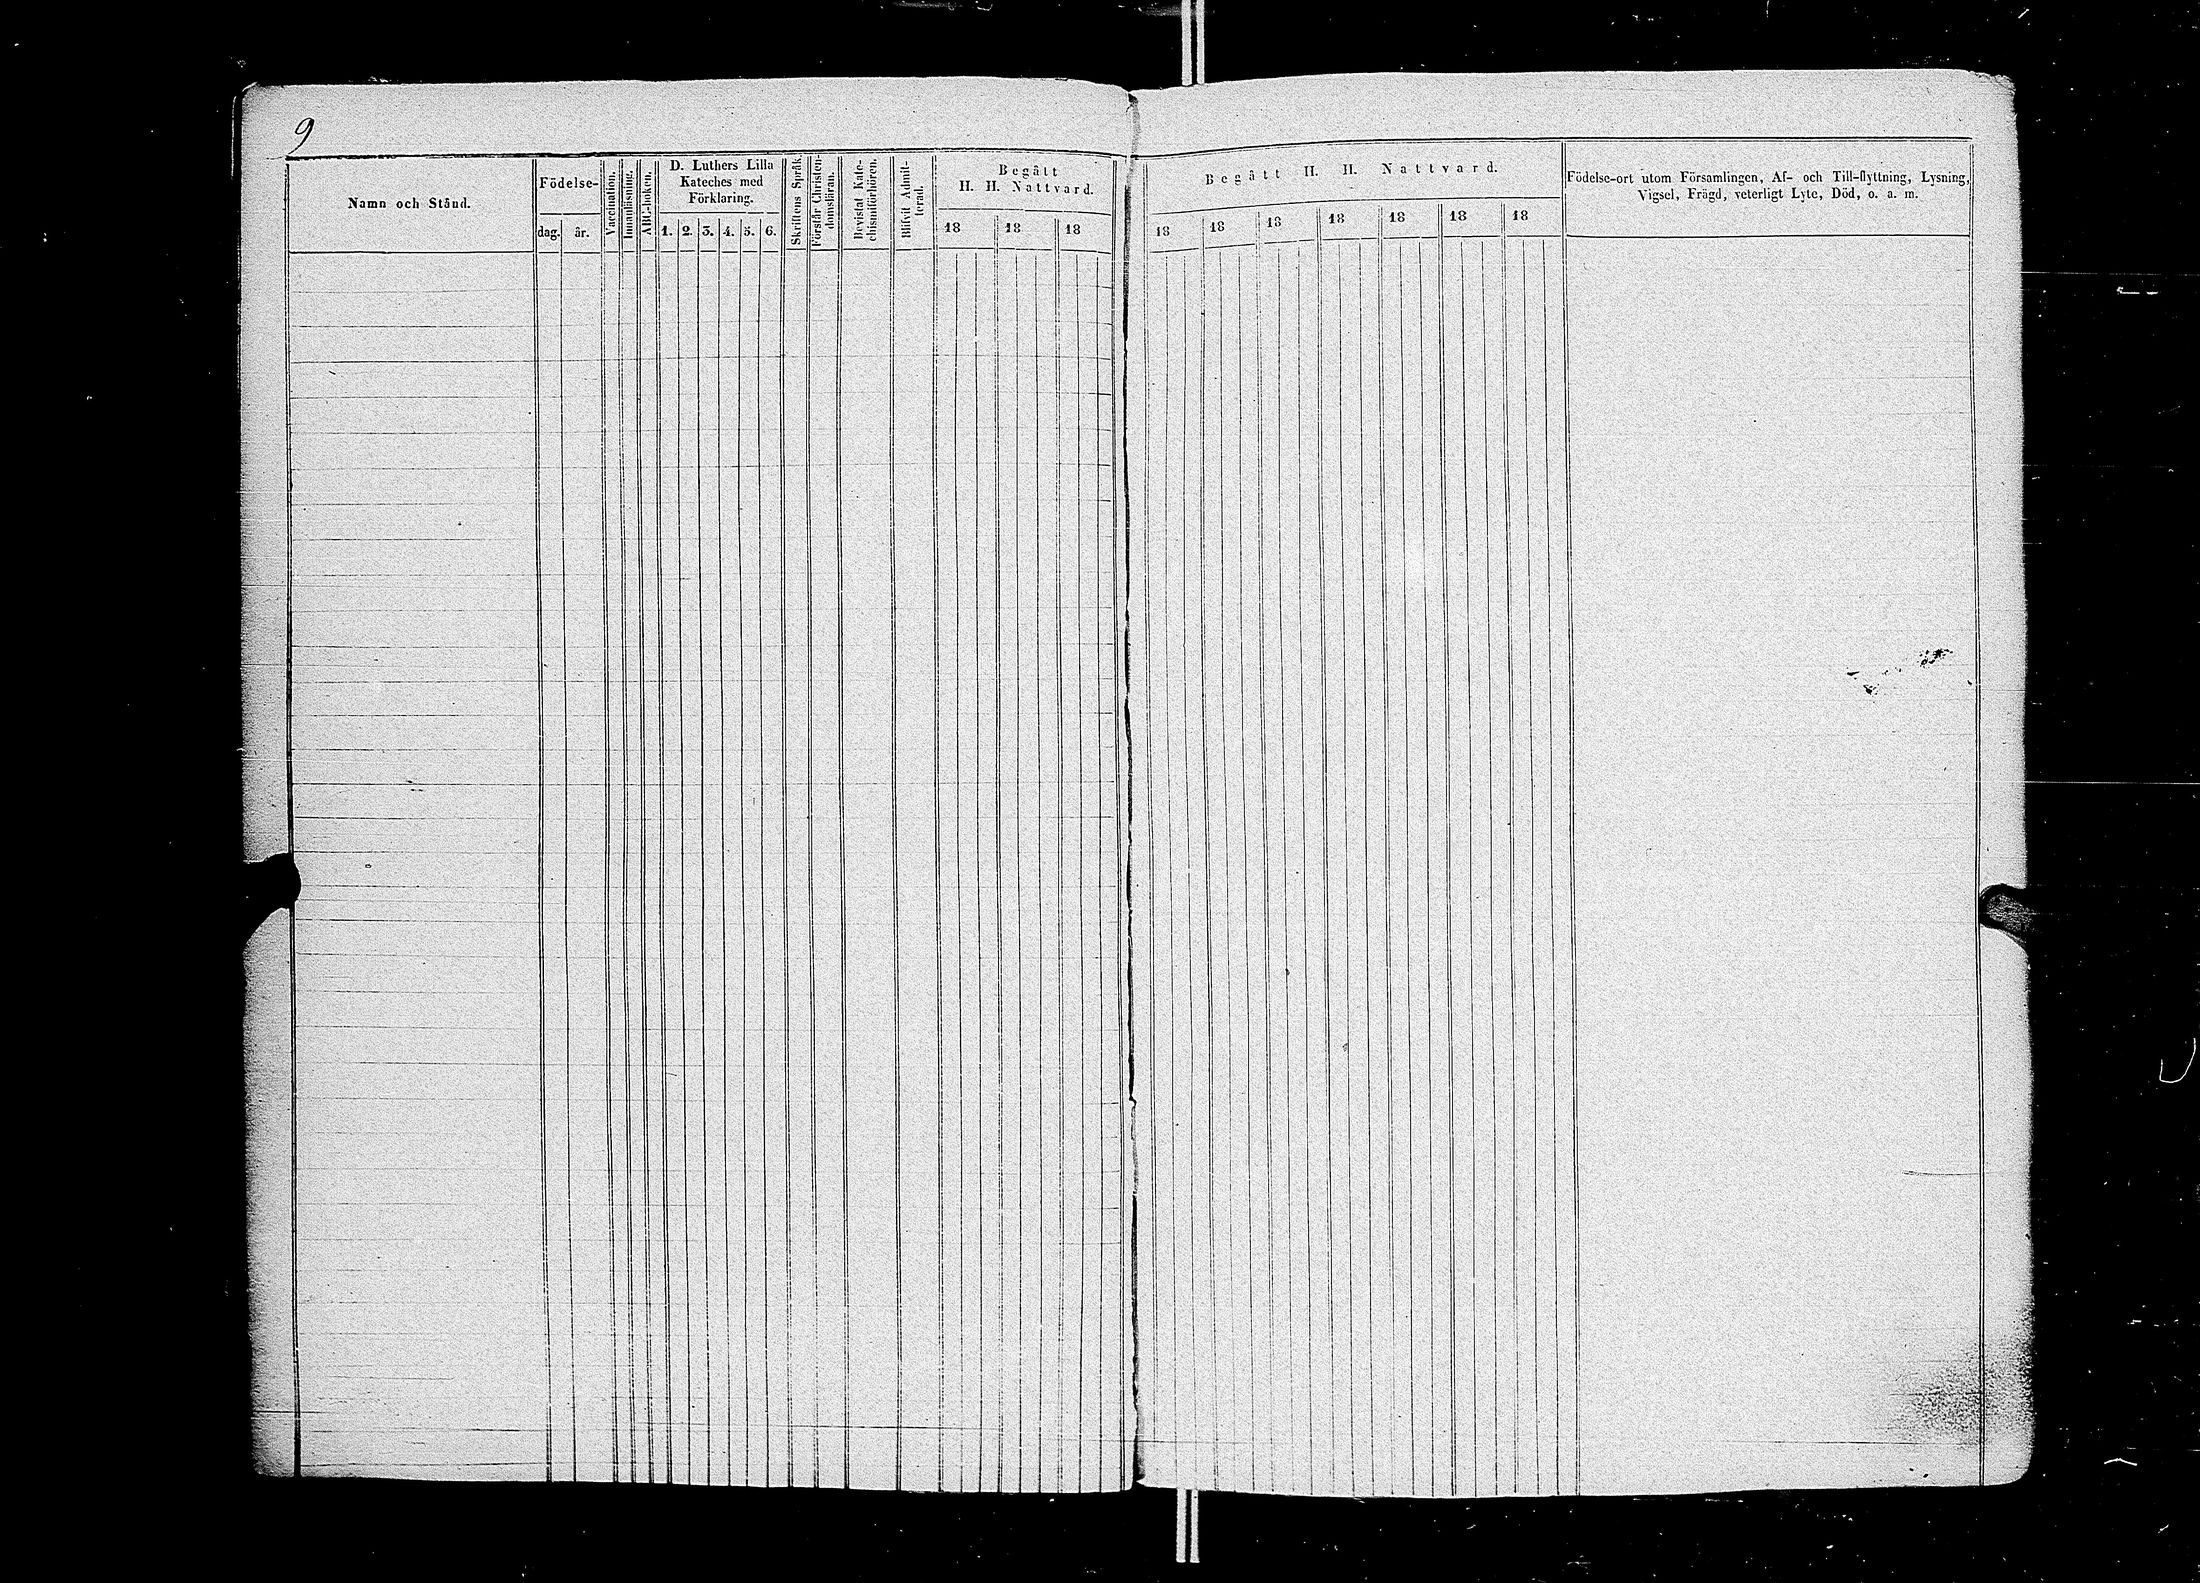 9
Namn och Stånd.
Födelse-
dag.
år.
Vaccination.
Innanläsning.
ABC-boken.
D. Luthers Lilla
Kateches med
Förklaring.
1. 2. 3. 4. 5. 6.
Skriftens Språk.
Förstår Christen-
domsläran.
Bevistat Kate-
chismiförhören.
Blifvit Admit-
terad.
Begått
H. H. Nattvard.
18 18 18
Begått H. H. Nattvard.
18 18 18 18 18 18 18
Födelse-ort utom Församlingen, Af- och Till-flyttning, Lysning,
Vigsel, Frägd, veterligt Lyte, Död, o. a. m.